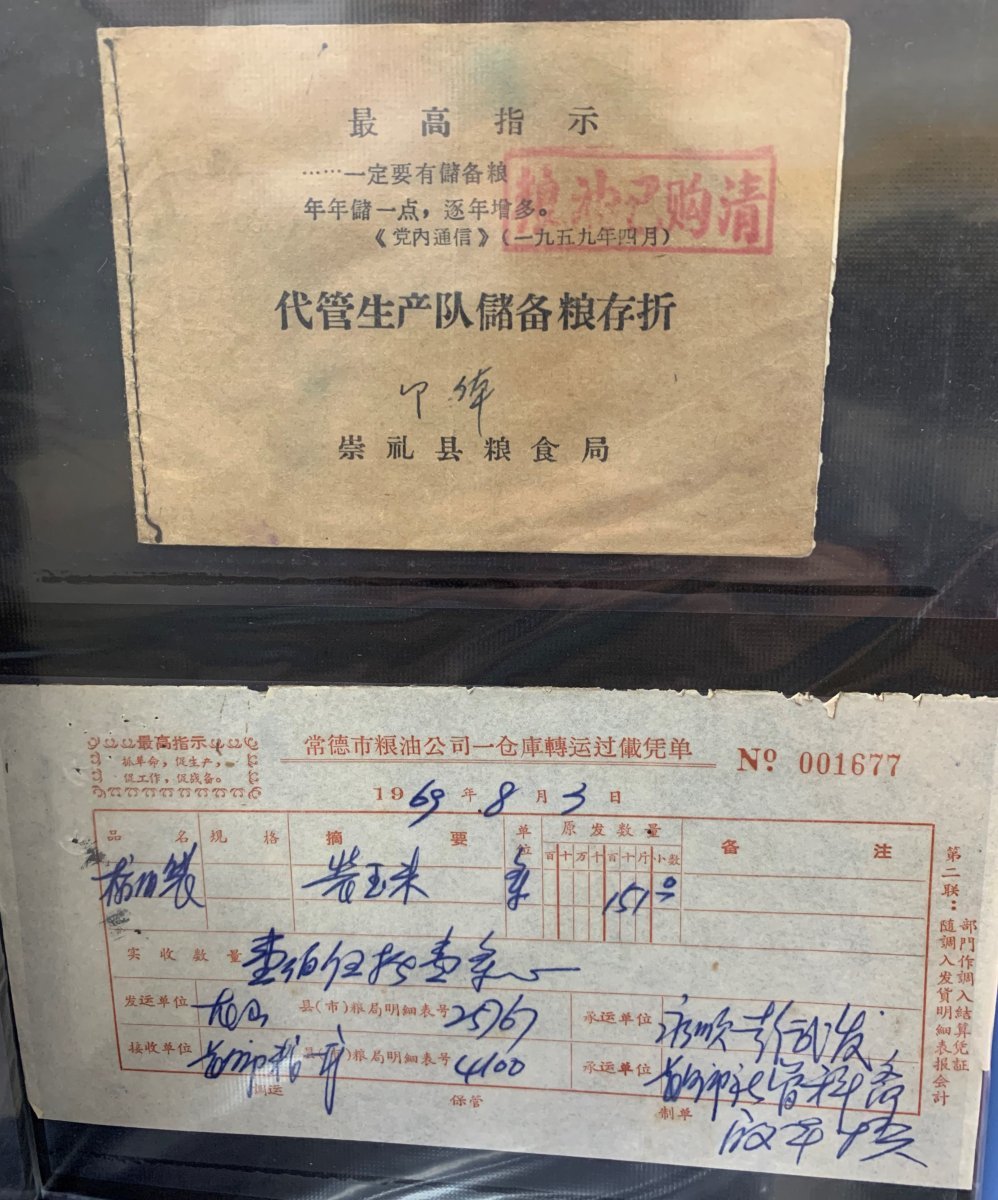 最高指示
……一定要有儲备粮
年年儲一点，逐年增多。
《党内通信》（一九五九年四月）
粮油已购清
代管生产队儲备粮存折
崇礼县粮食局
最高指示
抓革命，促生产，
促工作，促战备。
常德市粮油公司一仓庫轉运过儎凭单
№ 001677
1969年8月3日
品名 规格 摘要 单位 原发数量 备注
百十万千百十斤小数
装玉米 151
实收数量 壹佰伍拾壹
发运单位 龙山 县(市)粮局明細表号 25767 承运单位
接收单位 县(市)粮局明細表号 4100 承运单位
调运 保管 制单
第二联：
部門作調入結算凭证
随調入发貨明細表报会計